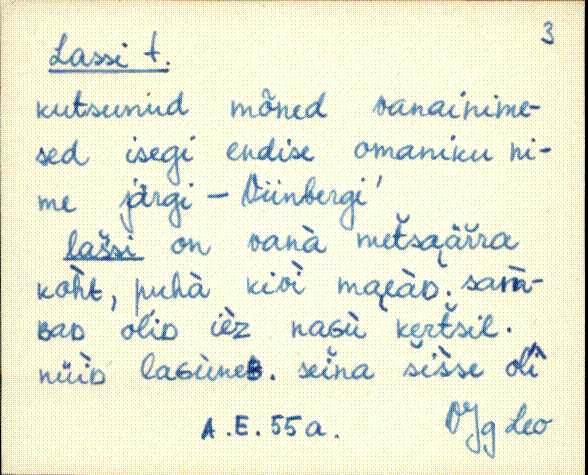 3
Lassi t.
kutsunud mõned vanainime-
sed isegi endise omaniku ni-
me järgi – Diinbergi'
lašši on vanà metšaäŕŕa
kòht, puhà kivì mäeàD. saṁ-
BaD olìD ièz naGù keŕtšil.
nüìD laGùneB. seìna šìsse olì
A.E. 55 a. Leo